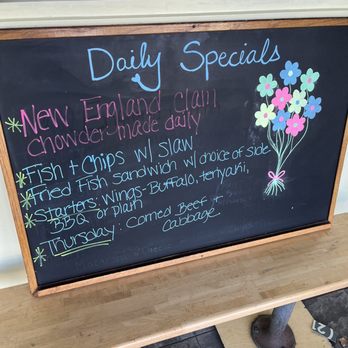 Daily Specials
* New England Clam
chowder-made daily
* Fish + Chips w/ Slaw
* Fried Fish Sandwich w/ choice of side
* Starters: Wings-Buffalo, teriyaki,
BBQ or plain
* Thursday: Corned Beef +
Cabbage